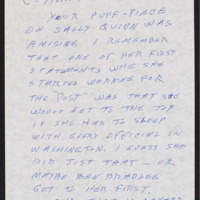 YOUR PUFF-PIECE
ON SALLY QUINN WAS
AMUSING. I REMEMBER
THAT ONE OF HER FIRST
STATEMENTS WHE SHE
STARTED WORKING FOR
THE "POST" WAS THAT SHE
WOULD GET TO THE TOP
IF SHE HAD TO SLEEP
WITH EVERY OFFICIAL IN
WASHINGTON. I GUESS SHE
DID JUST THAT — OR
MAYBE BEN BRADLEE
GOT TO HER FIRST.